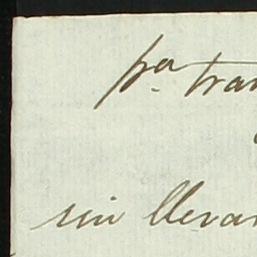 pa tra
sin lleva